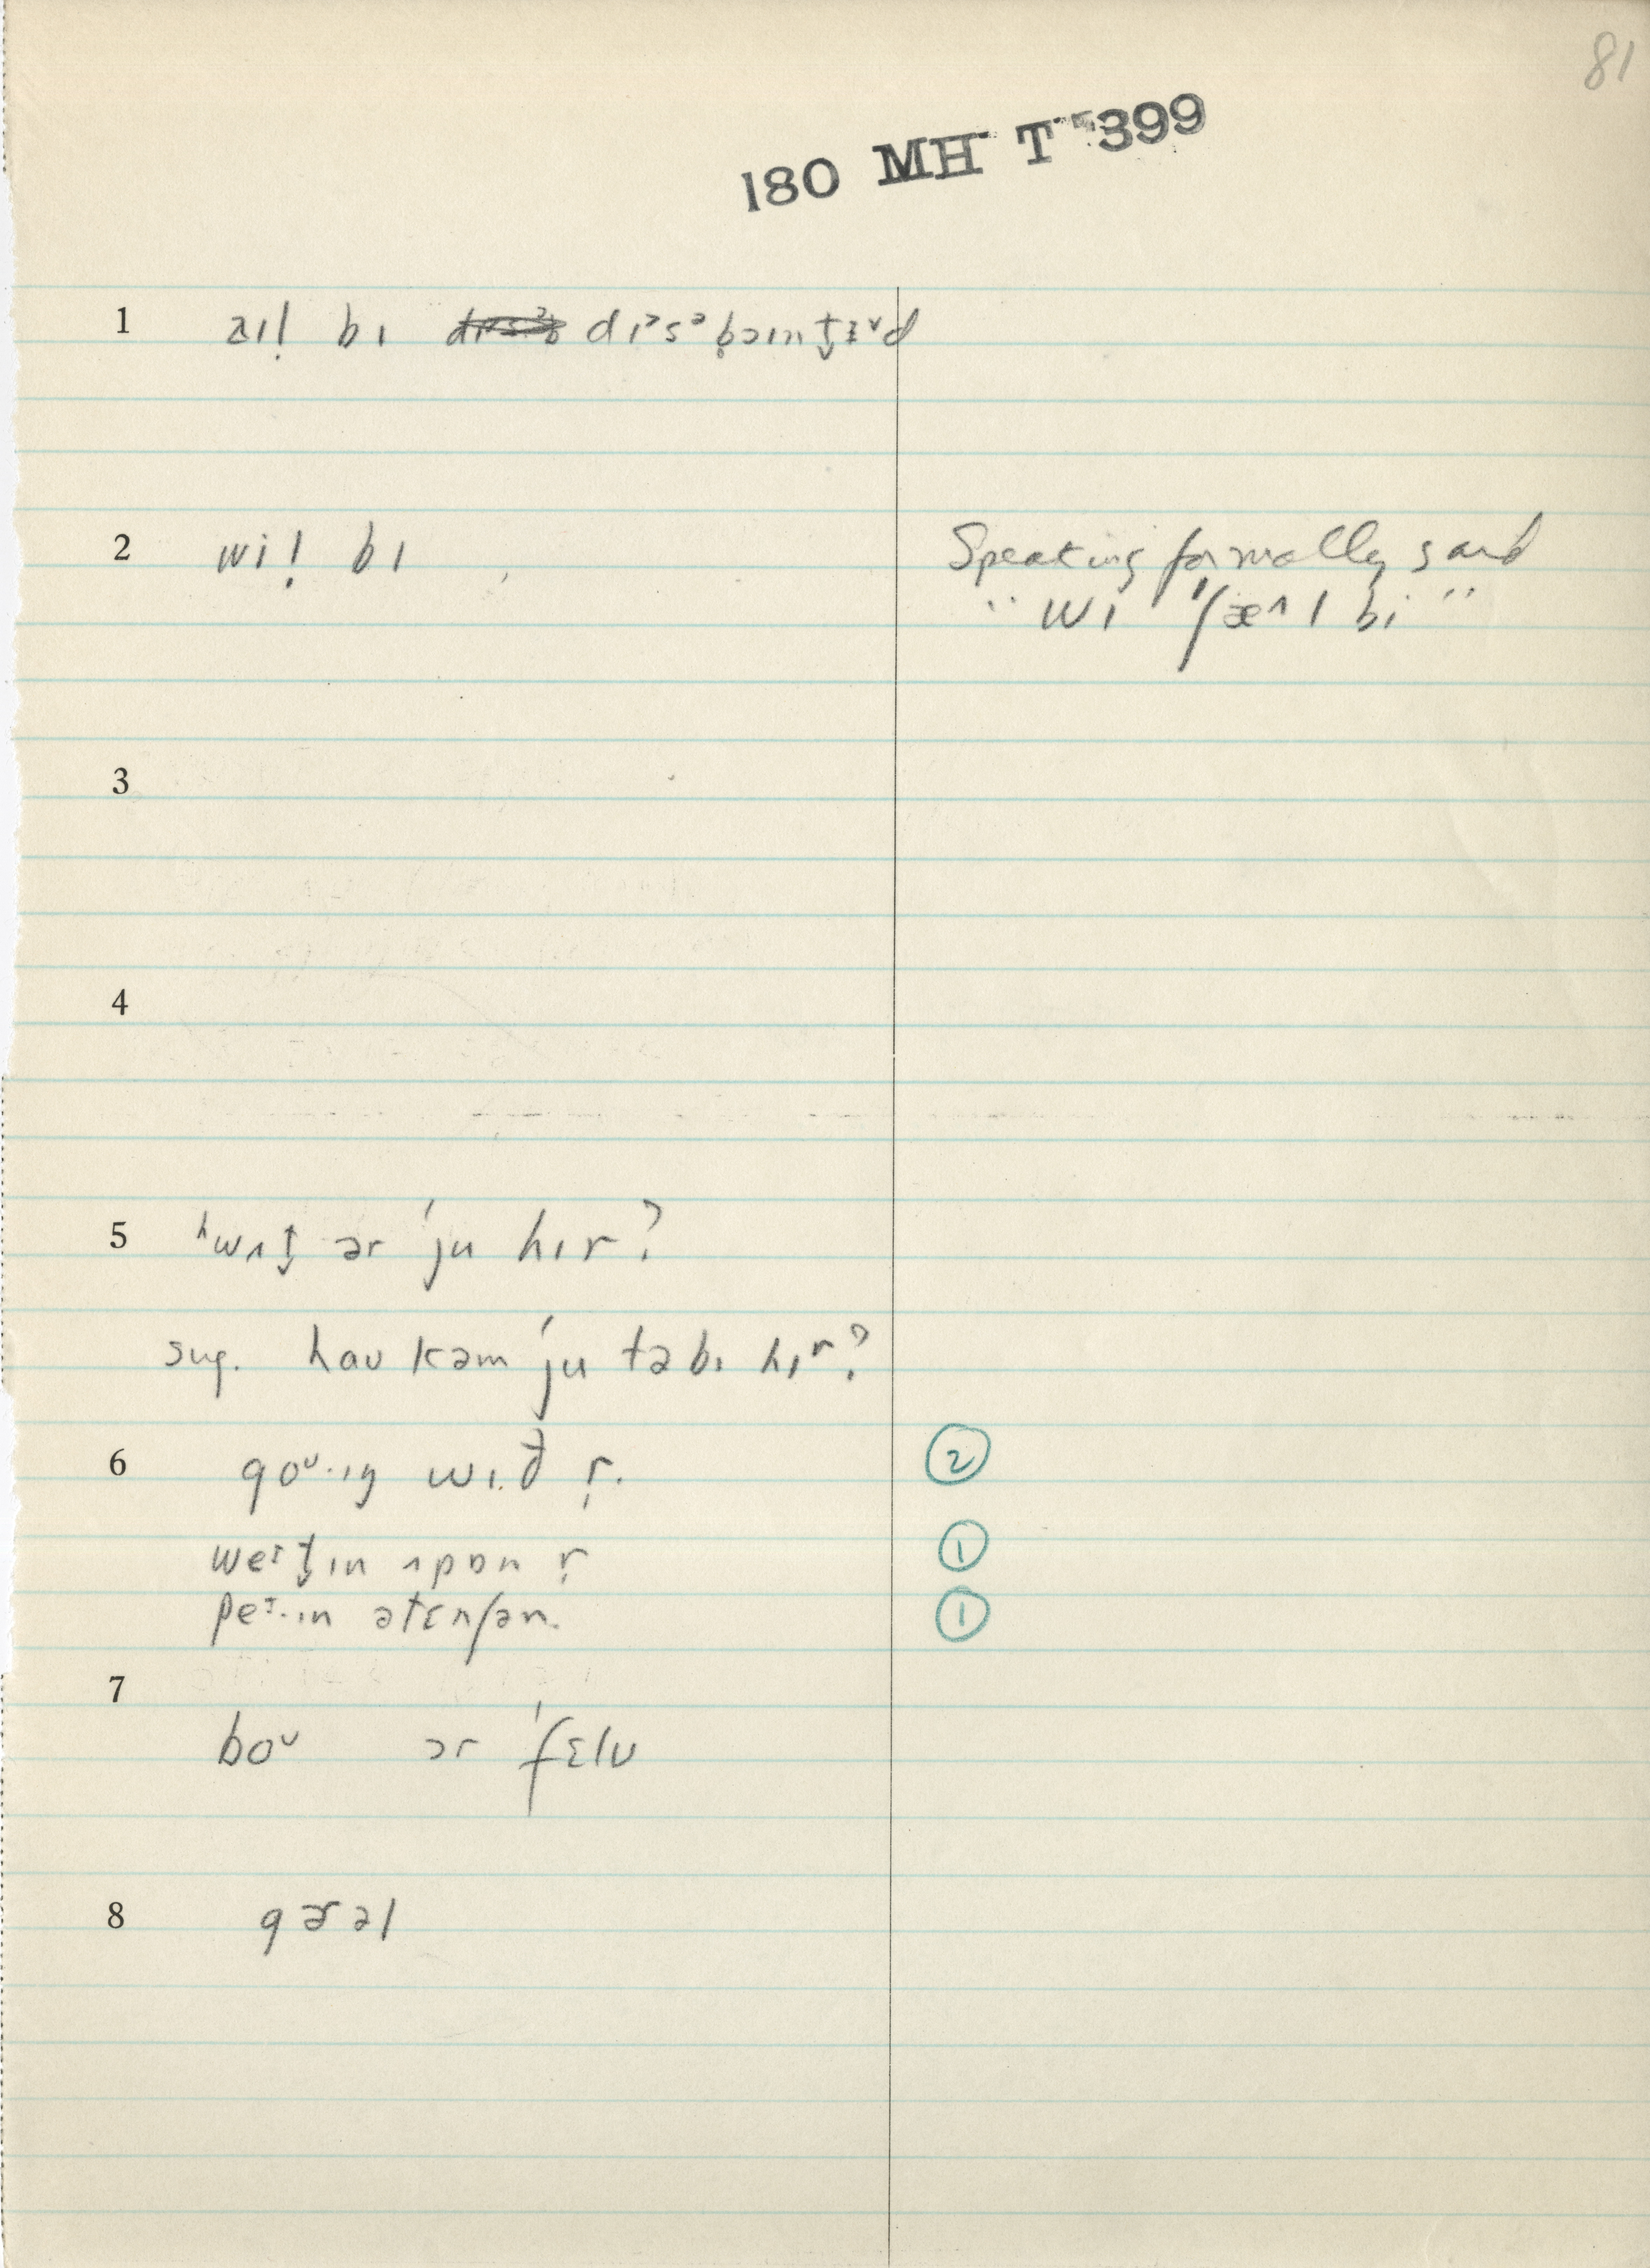 81
180 MH T 399
1 aɪl̩ bɪ dɪᵊsᵊb̥ɔɪnt̬ɪᵛd
2 wil̩ bɪ Speaking formally said
"wɪ ʃæ^l bi"
3
4
5 ʰwʌt̬ ər 'ju hɪr?
sug. hau kəm 'ju tə bɪ hɪr?
6 goᵁ·ɪŋ wɪ.ð r̩. ②
weᴵt̬ɪn ʌpɒn r̩ ①
peᴵ·ɪn ətɛnʃən. ①
7
boᵁ ər 'fɛlʊ
8 gɚəl